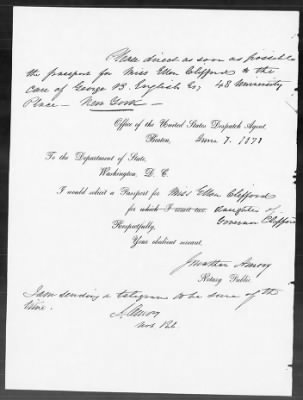 Please direct as soon as possible
the passport for Miss Ellen Clifford to the
care of George B. English Esq 48 University
Place — New York —
Office of the United States Despatch Agent
Boston, June 7. 1871
To the Department of State,
Washington, D. C.
I would solicit a Passport for Miss Ellen Clifford
for which I daughter of
Governor Clifford
Respectfully,
Your obedient servant,
Jonathan Amory
Notary Public
I am sending a telegram to be sure of the
time.
J. Amory
Not. Pub.